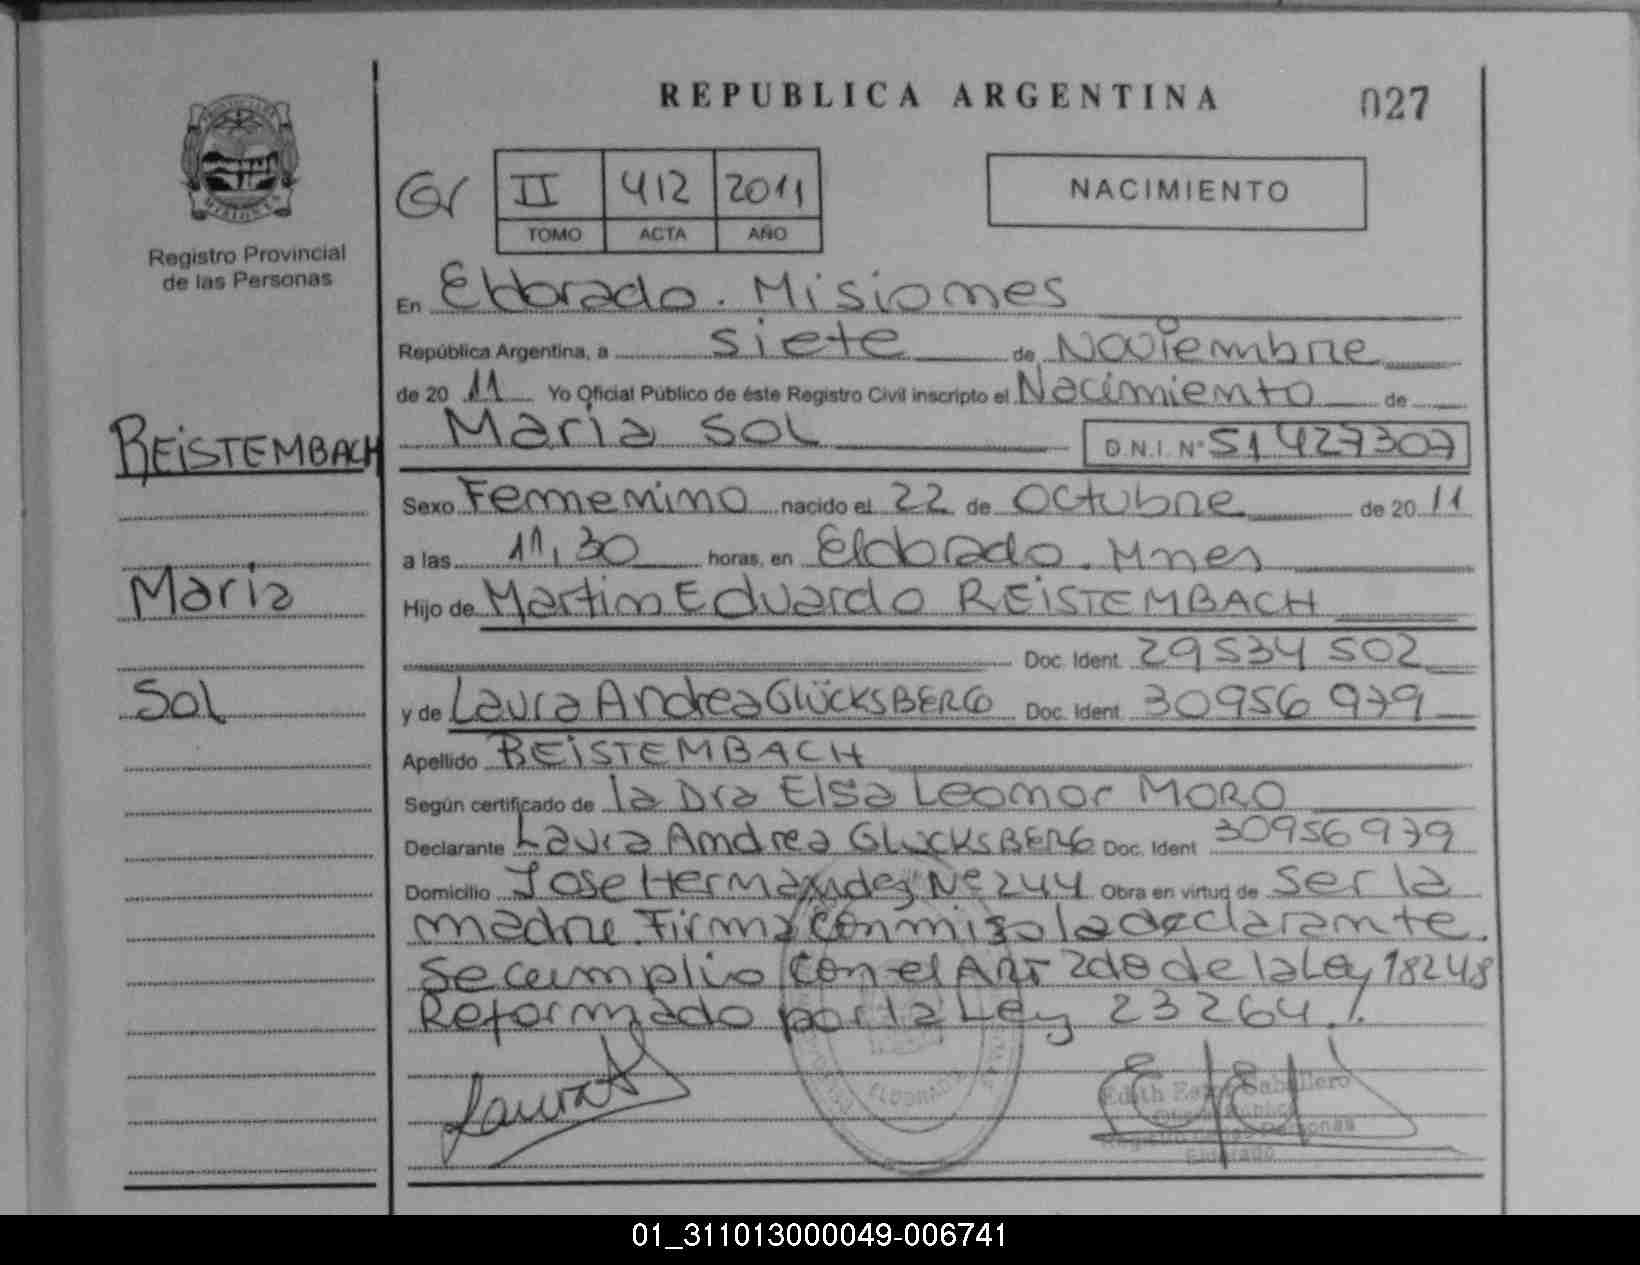 REPUBLICA ARGENTINA
027
Registro Provincial
de las Personas
II 412 2011
TOMO ACTA AÑO
NACIMIENTO
En Eldorado. Misiones
República Argentina, a siete de Noviembre
de 20 11 Yo Oficial Público de éste Registro Civil inscripto el Nacimiento de
Maria Sol D.N.I. Nº 51 427307
REISTEMBACH
Maria
Sol
Sexo Femenino nacido el 22 de Octubre de 20 11
a las 11,30 horas, en Eldorado. Mnes
Hijo de Martin Eduardo REISTEMBACH
Doc. Ident. 29534 502
y de Laura Andrea GLÜCKSBERG Doc. Ident. 30956 979
Apellido REISTEMBACH
Según certificado de la Dra Elsa Leonor MORO
Declarante Laura Andrea GLUCKSBERG Doc. Ident 30956979
Domicilio Jose Hernandez Nº 244 Obra en virtud de ser la
madre. Firma conmigo la declarante.
Se cumplio con el Art 2do de la Ley 18248
Reformado por la Ley 23264./.
Laura
ELDORADO
Edith Caballero
Eldorado
01_311013000049-006741